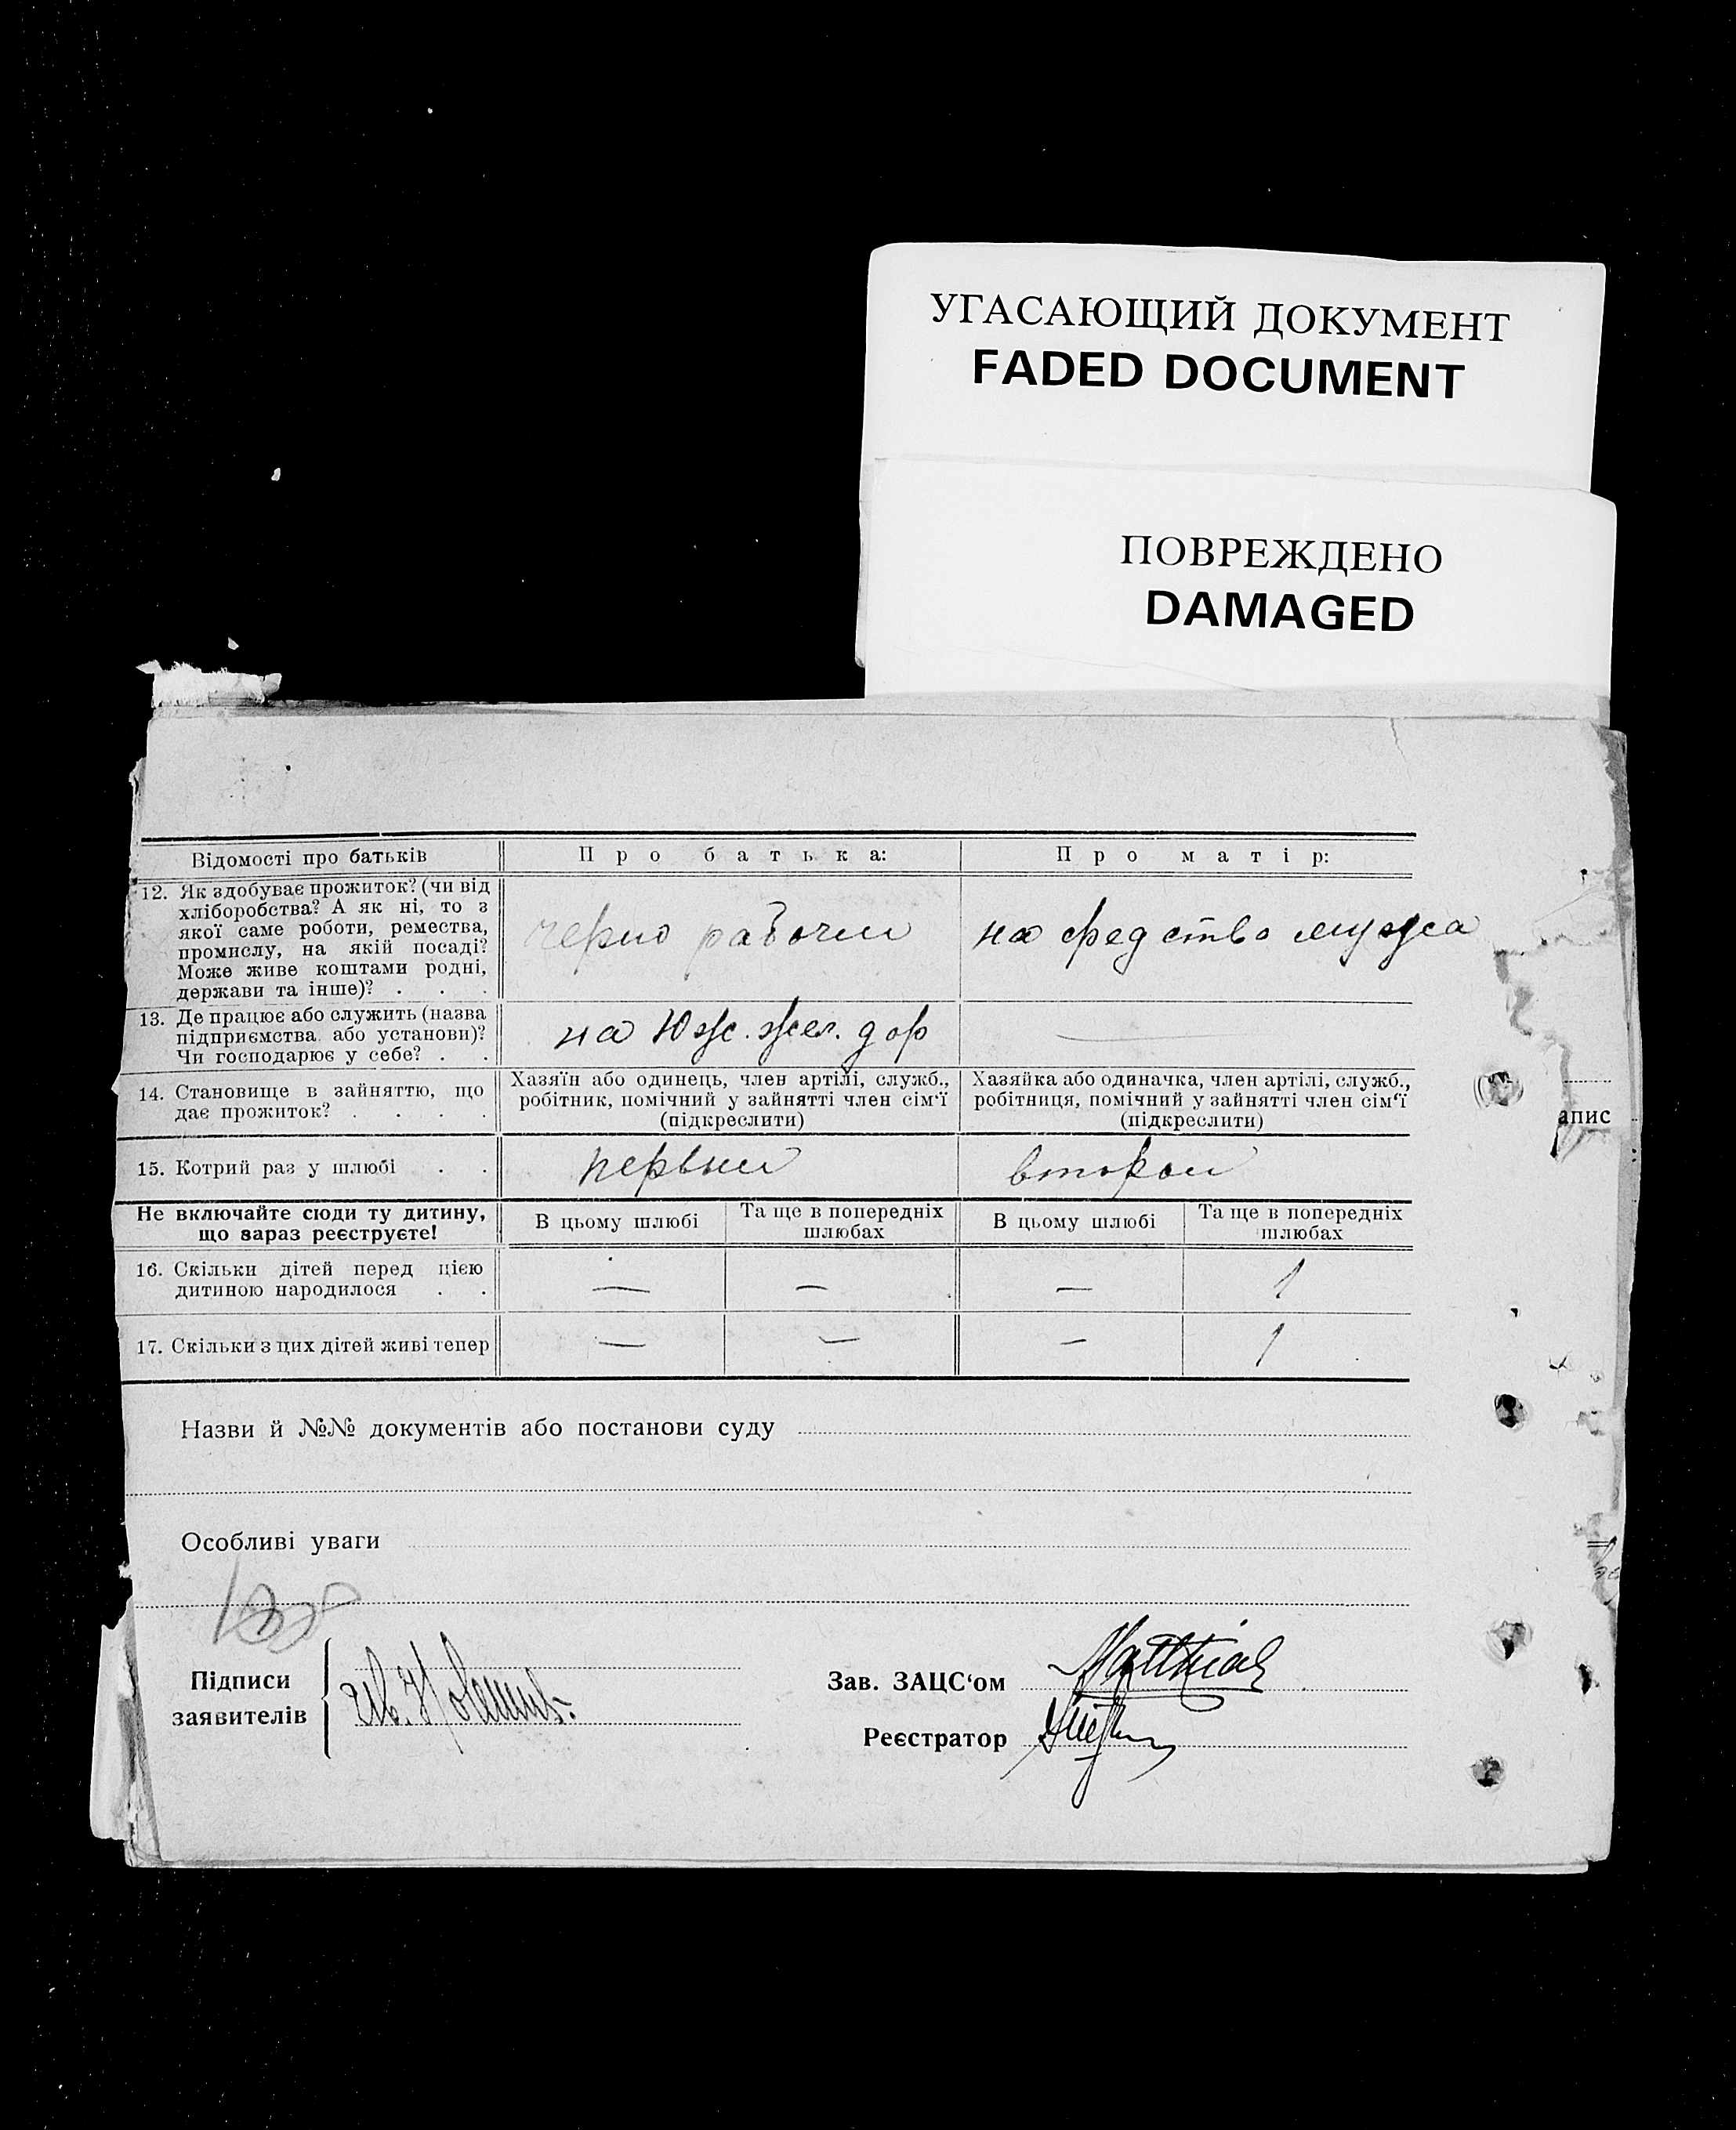 УГАСАЮЩИЙ ДОКУМЕНТ
FADED DOCUMENT
ПОВРЕЖДЕНО
DAMAGED
Відомості про батьків
Про батька:
Про матір:
12. Як здобуває прожиток? (чи від
хліборобства? А як ні, то з
якої саме роботи, ремества,
промислу, на якій посаді?
Може живе коштами родні,
держави та інше)? . . .
черно рабочии
на средство мужа
13. Де працює або служить (назва
підприємства або установи)?
Чи господарює у себе? . .
на Юж. жел. дор
—
14. Становище в зайняттю, що
дає прожиток? . . . .
Хазяїн або одинець, член артілі, служб.,
робітник, помічний у зайнятті член сім'ї
(підкреслити)
Хазяйка або одиначка, член артілі, служб.,
робітниця, помічний у зайнятті член сім'ї
(підкреслити)
апис
15. Котрий раз у шлюбі . .
первыи
второи
Не включайте сюди ту дитину,
що зараз реєструєте!
В цьому шлюбі
Та ще в попередніх
шлюбах
В цьому шлюбі
Та ще в попередніх
шлюбах
16. Скільки дітей перед цією
дитиною народилося . .
— — — 1
17. Скільки з цих дітей живі тепер
— — — 1
Назви й №№ документів або постанови суду
Особливі уваги
Підписи
заявителів
Зав. ЗАЦС‘ом
Реєстратор